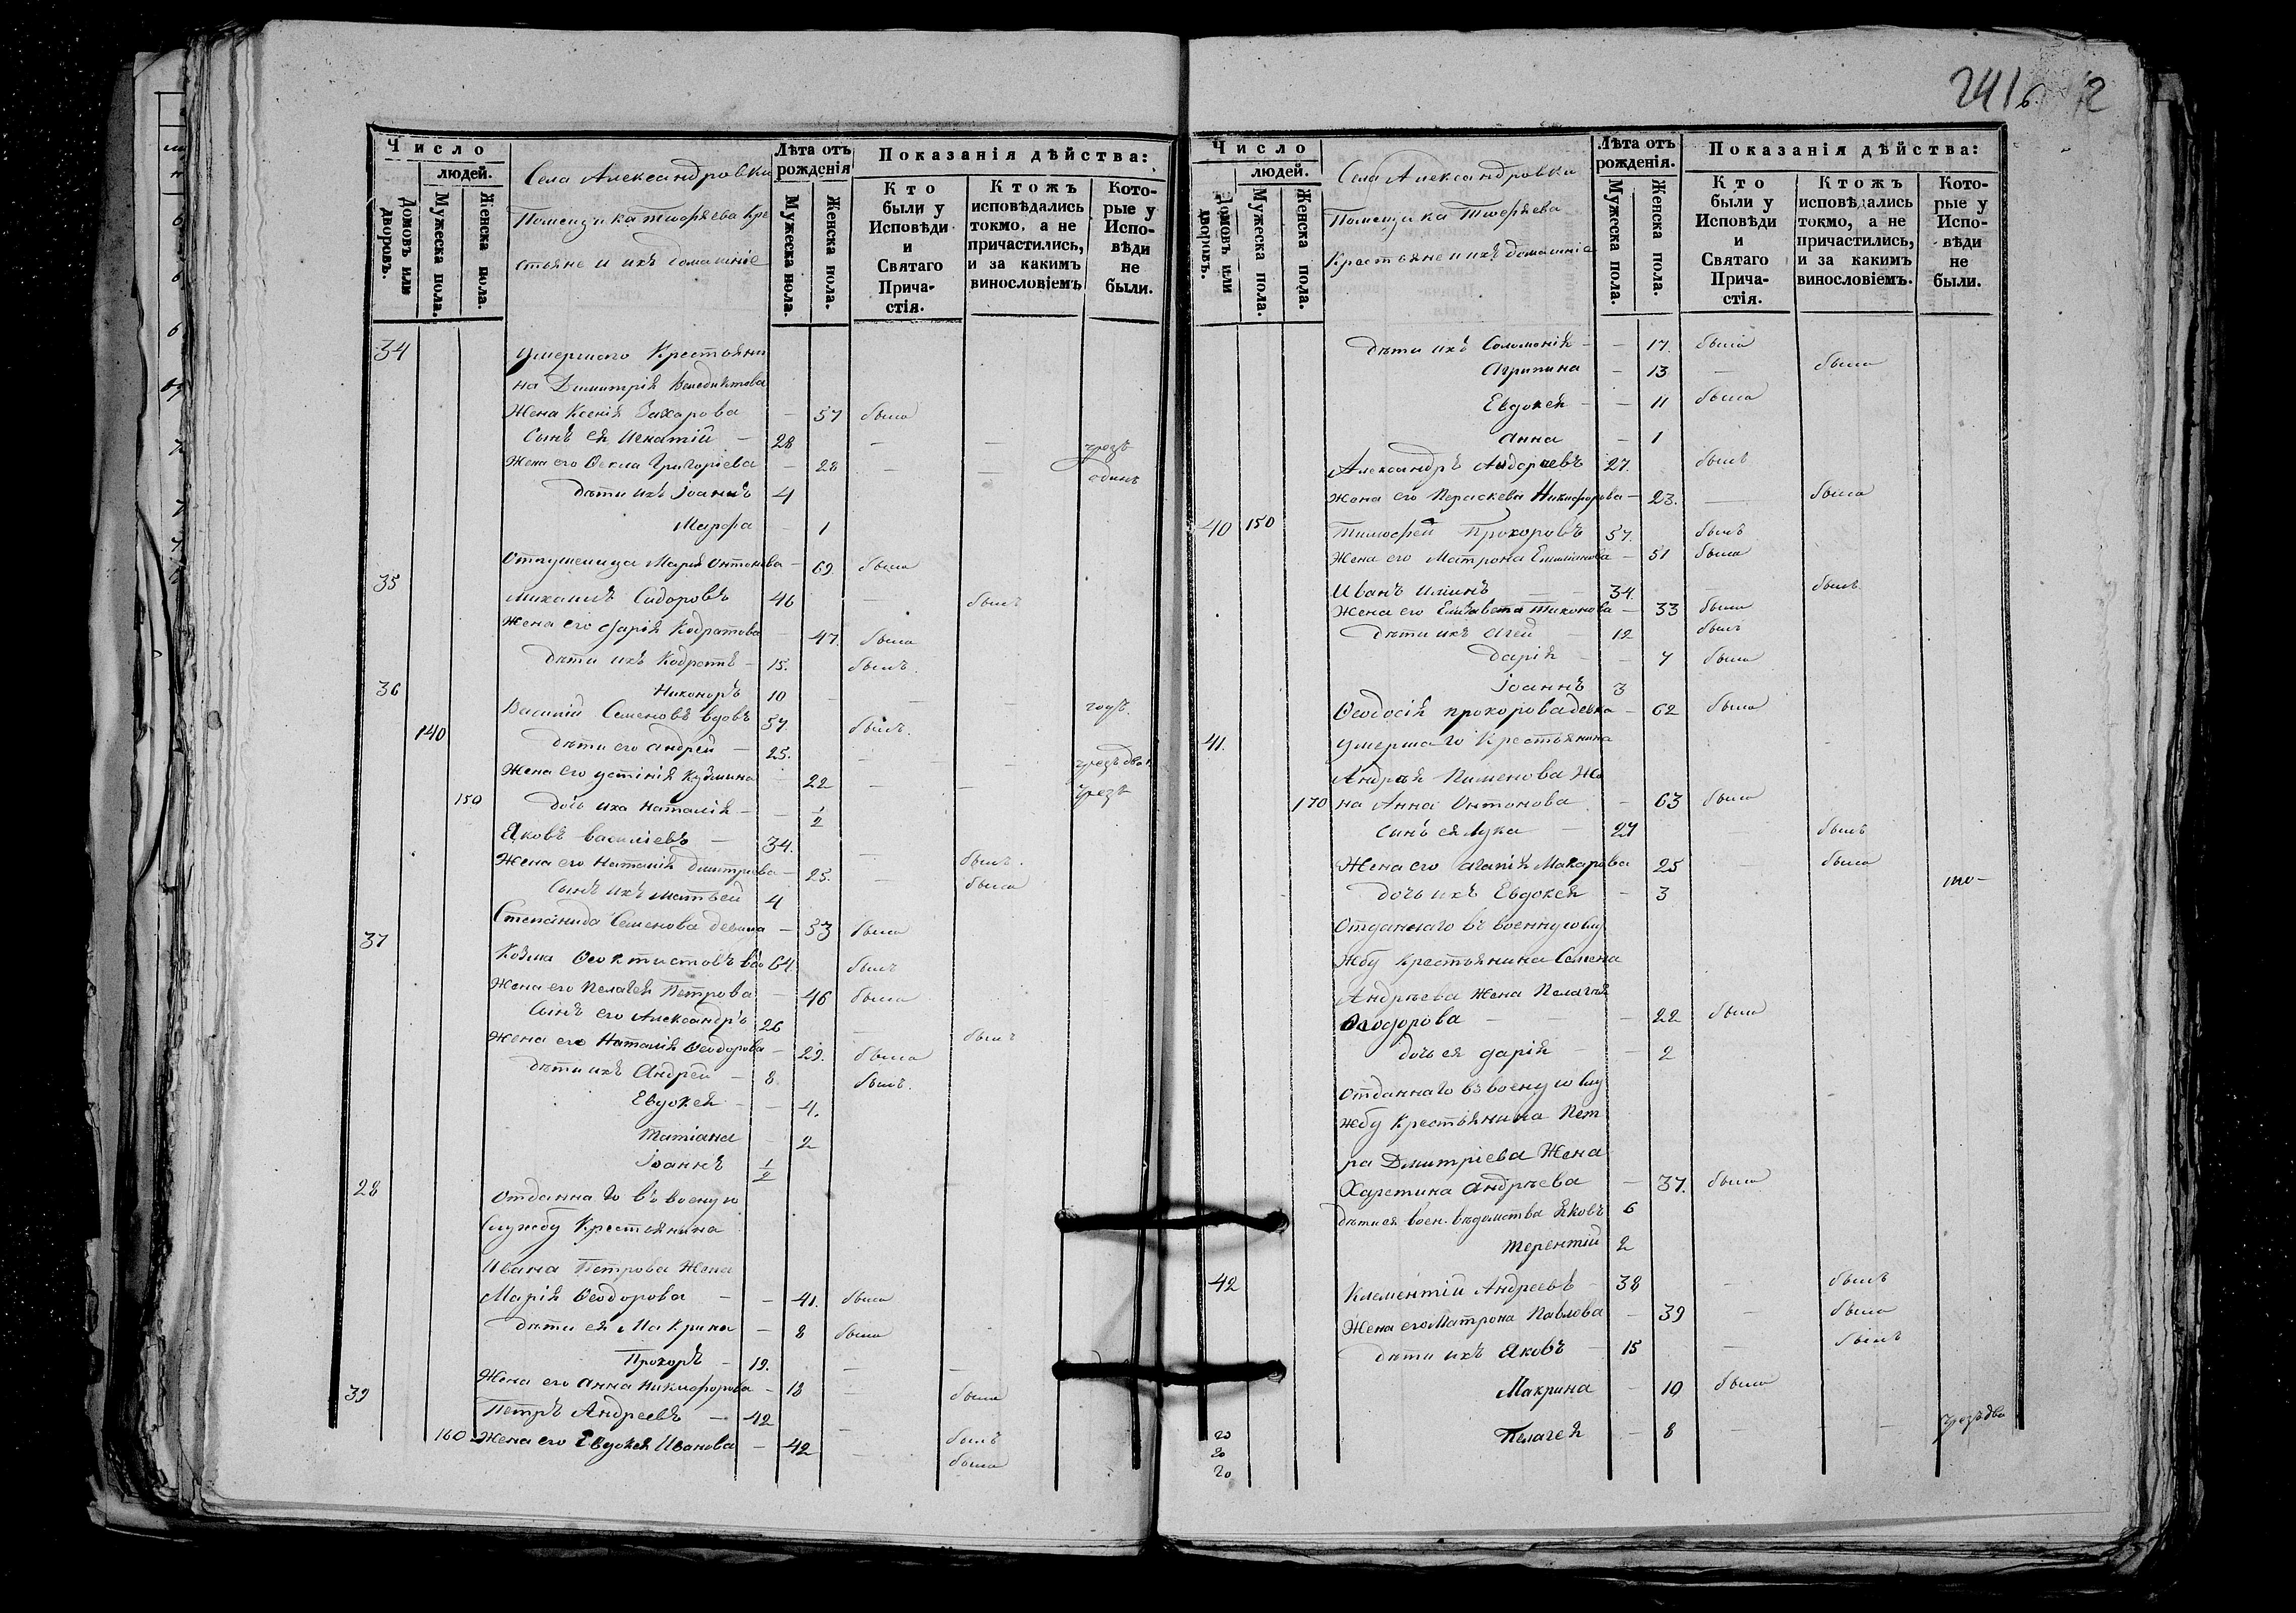 241
Число
людей.
Домовъ или дворовъ.
Мужеска пола.
Женска пола.
Села Александровки
Помещика Кре
стьяне и ихъ домашніе
Лѣта отъ рожденія
Мужеска пола.
Женска пола.
Показанія дѣйства:
Кто были у Исповѣди и Святаго Прича-стія.
Ктожъ исповѣдались токмо, а не причастились, и за какимъ винословіемъ
Кото-рые у Испо-вѣди не были.
34 умершаго Крестьяни
на Димитрія Венедиктова
Жена Ксенія Захарова - 57 была
Сынъ ея Игнатій - 28 - - чрезъ
Жена его Ѳекла Григоріева - 28 - - одинъ
дѣти ихъ Іоаннъ 4
Марфа - 1
Марія Онтонова - 69. была
35 Михаилъ Сидоровъ 46 - былъ
Жена его Дарія Кодратова - 47. была
дѣти ихъ Кодратъ - 15. былъ.
Никоноръ 10 - - годъ.
36 Василій Семеновъ вдовъ 57. былъ.
140 дѣти его Андрей - 25. - - чрезъ два
Жена его Устинія Кузмина 22 - - чрезъ
150 дочь ихъ Наталія - - 1/2
Яковъ Василіевъ - 34. - былъ.
Жена его Наталія Дмитріева - 25. - была
Сынъ ихъ Матвей 4
Степанида Семенова девица - 53 была
37 Козма Ѳеоктистовъ 64. былъ
Жена его Пелагея Петрова - 46 была
Сынъ его Александръ 26 - былъ
Жена его Наталія Ѳеодорова - 29. была
дѣти ихъ Андрей - 8 былъ.
Евдокея - - 4.
Татіана - 2
Іоаннъ 1/2
28 Отданнаго въ военую
Службу Крестьянина
Ивана Петрова Жена
Марія Ѳеодорова - - 41. была
дѣти ея Макрина - 8 была
Прохоръ - 19. - -
Жена его Анна Никифорова - 18 - была
39 Петръ Андреевъ - 42 - былъ
160 Жена его Евдокея Иванова - 42 - была
Число
людей.
Домовъ или дворовъ.
Мужеска пола.
Женска пола.
Села Александровки
Помещика
Крестьяне и ихъ домашніе
Лѣта отъ рожденія.
Мужеска пола.
Женска пола.
Показанія дѣйства:
Кто были у Исповѣди и Святаго Прича-стія.
Ктожъ исповѣдались токмо, а не причастились, и за какимъ винословіемъ.
Кото-рые у Испо-вѣди не были.
дѣти ихъ Соломонія - - 17. была
Агрипина - 13 - была
Евдокея - - 11 была
Анна - 1
Александръ Андреевъ 27. былъ
Жена его Параскева Никифорова - 23. - была
40 150 Тимофей Прохоровъ 57. былъ
Жена его Матрона - 51 была
Иванъ - - 34. - былъ
Жена его Елизавета Тихонова - 33 была
дѣти ихъ Агей - 12 былъ
Дарія - - 7 была
Іоаннъ 3
Ѳеодосія Прохорова девка - 62 была
41. умершаго Крестьянина
Андрея Пименова Же
170 на Анна Онтонова - 63 была
сынъ ея Лука - 27 - былъ
Жена его Агапія Макарова 25 - была
дочь ихъ Евдокея - 3
Отданнаго въ военную слу
жбу Крестьянина Семена
Андреева Жена Пелагея
Ѳеодорова - - - 22 была
дочь ея Дарія - - 2
Отданнаго въ военую слу
жбу Крестьянина Пет
ра Дмитріева Жена
Харетина Андреева - 37. была
дѣти ея воен. вѣдомства Яковъ 6
Терентій 2
42 Клементій Андреевъ - 38 - былъ
Жена его Матрона Павлова - 39 - была
дѣти ихъ Яковъ - 15 - былъ
Макрина - 10 была
Пелагея - 8 - - чрезъ два